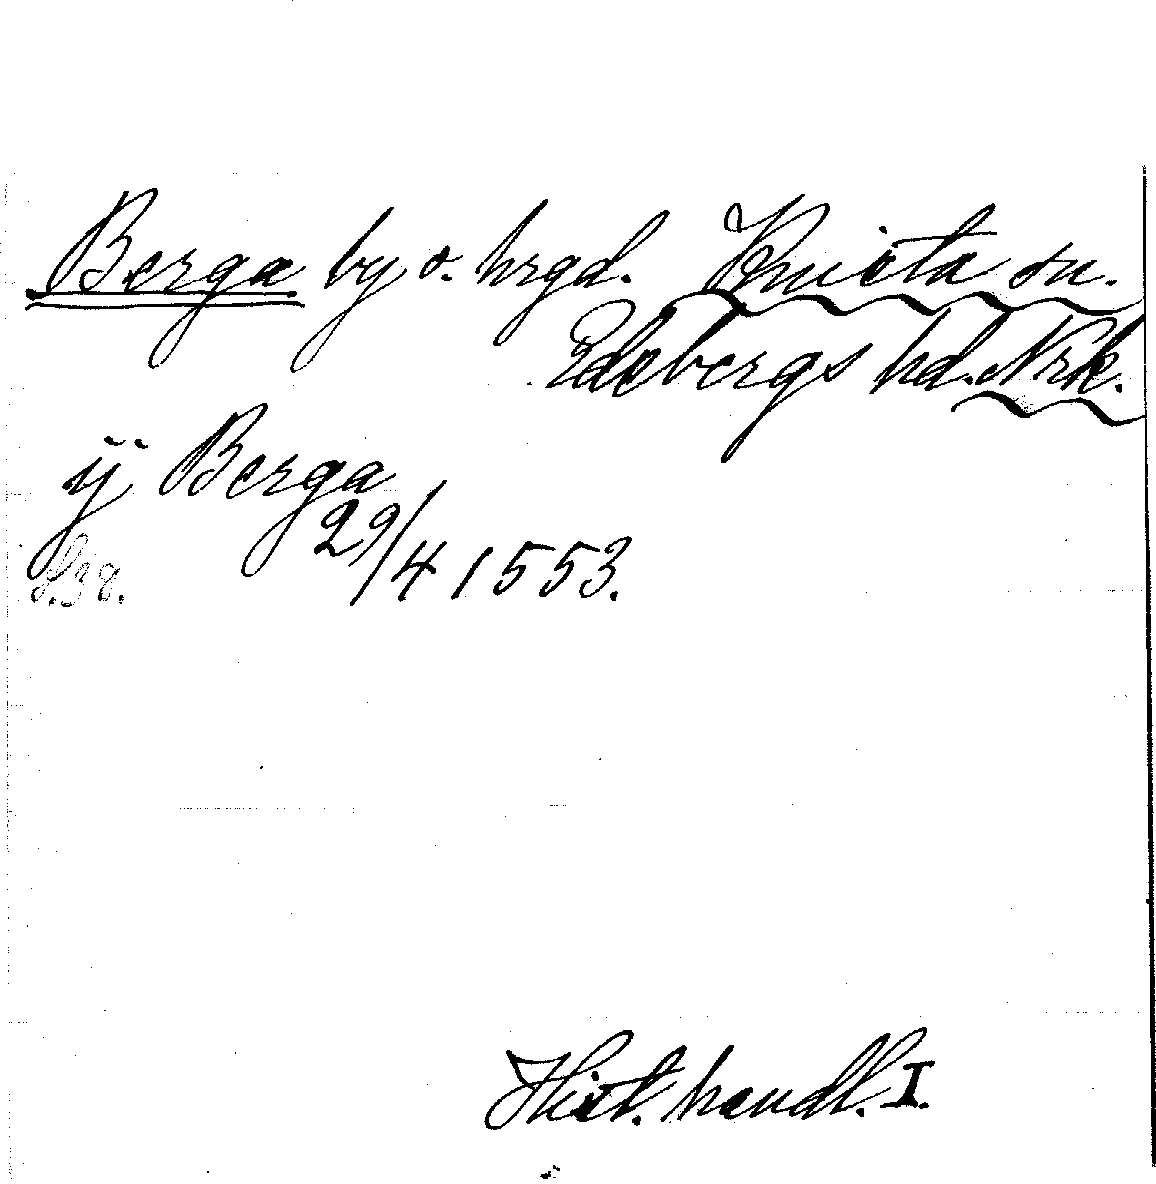 Berga by o. hrgd. Knista sn.
Edsbergs hd. Nrk.
ij Berga
29/4 1553.
s.38.
Hist. handl. I.